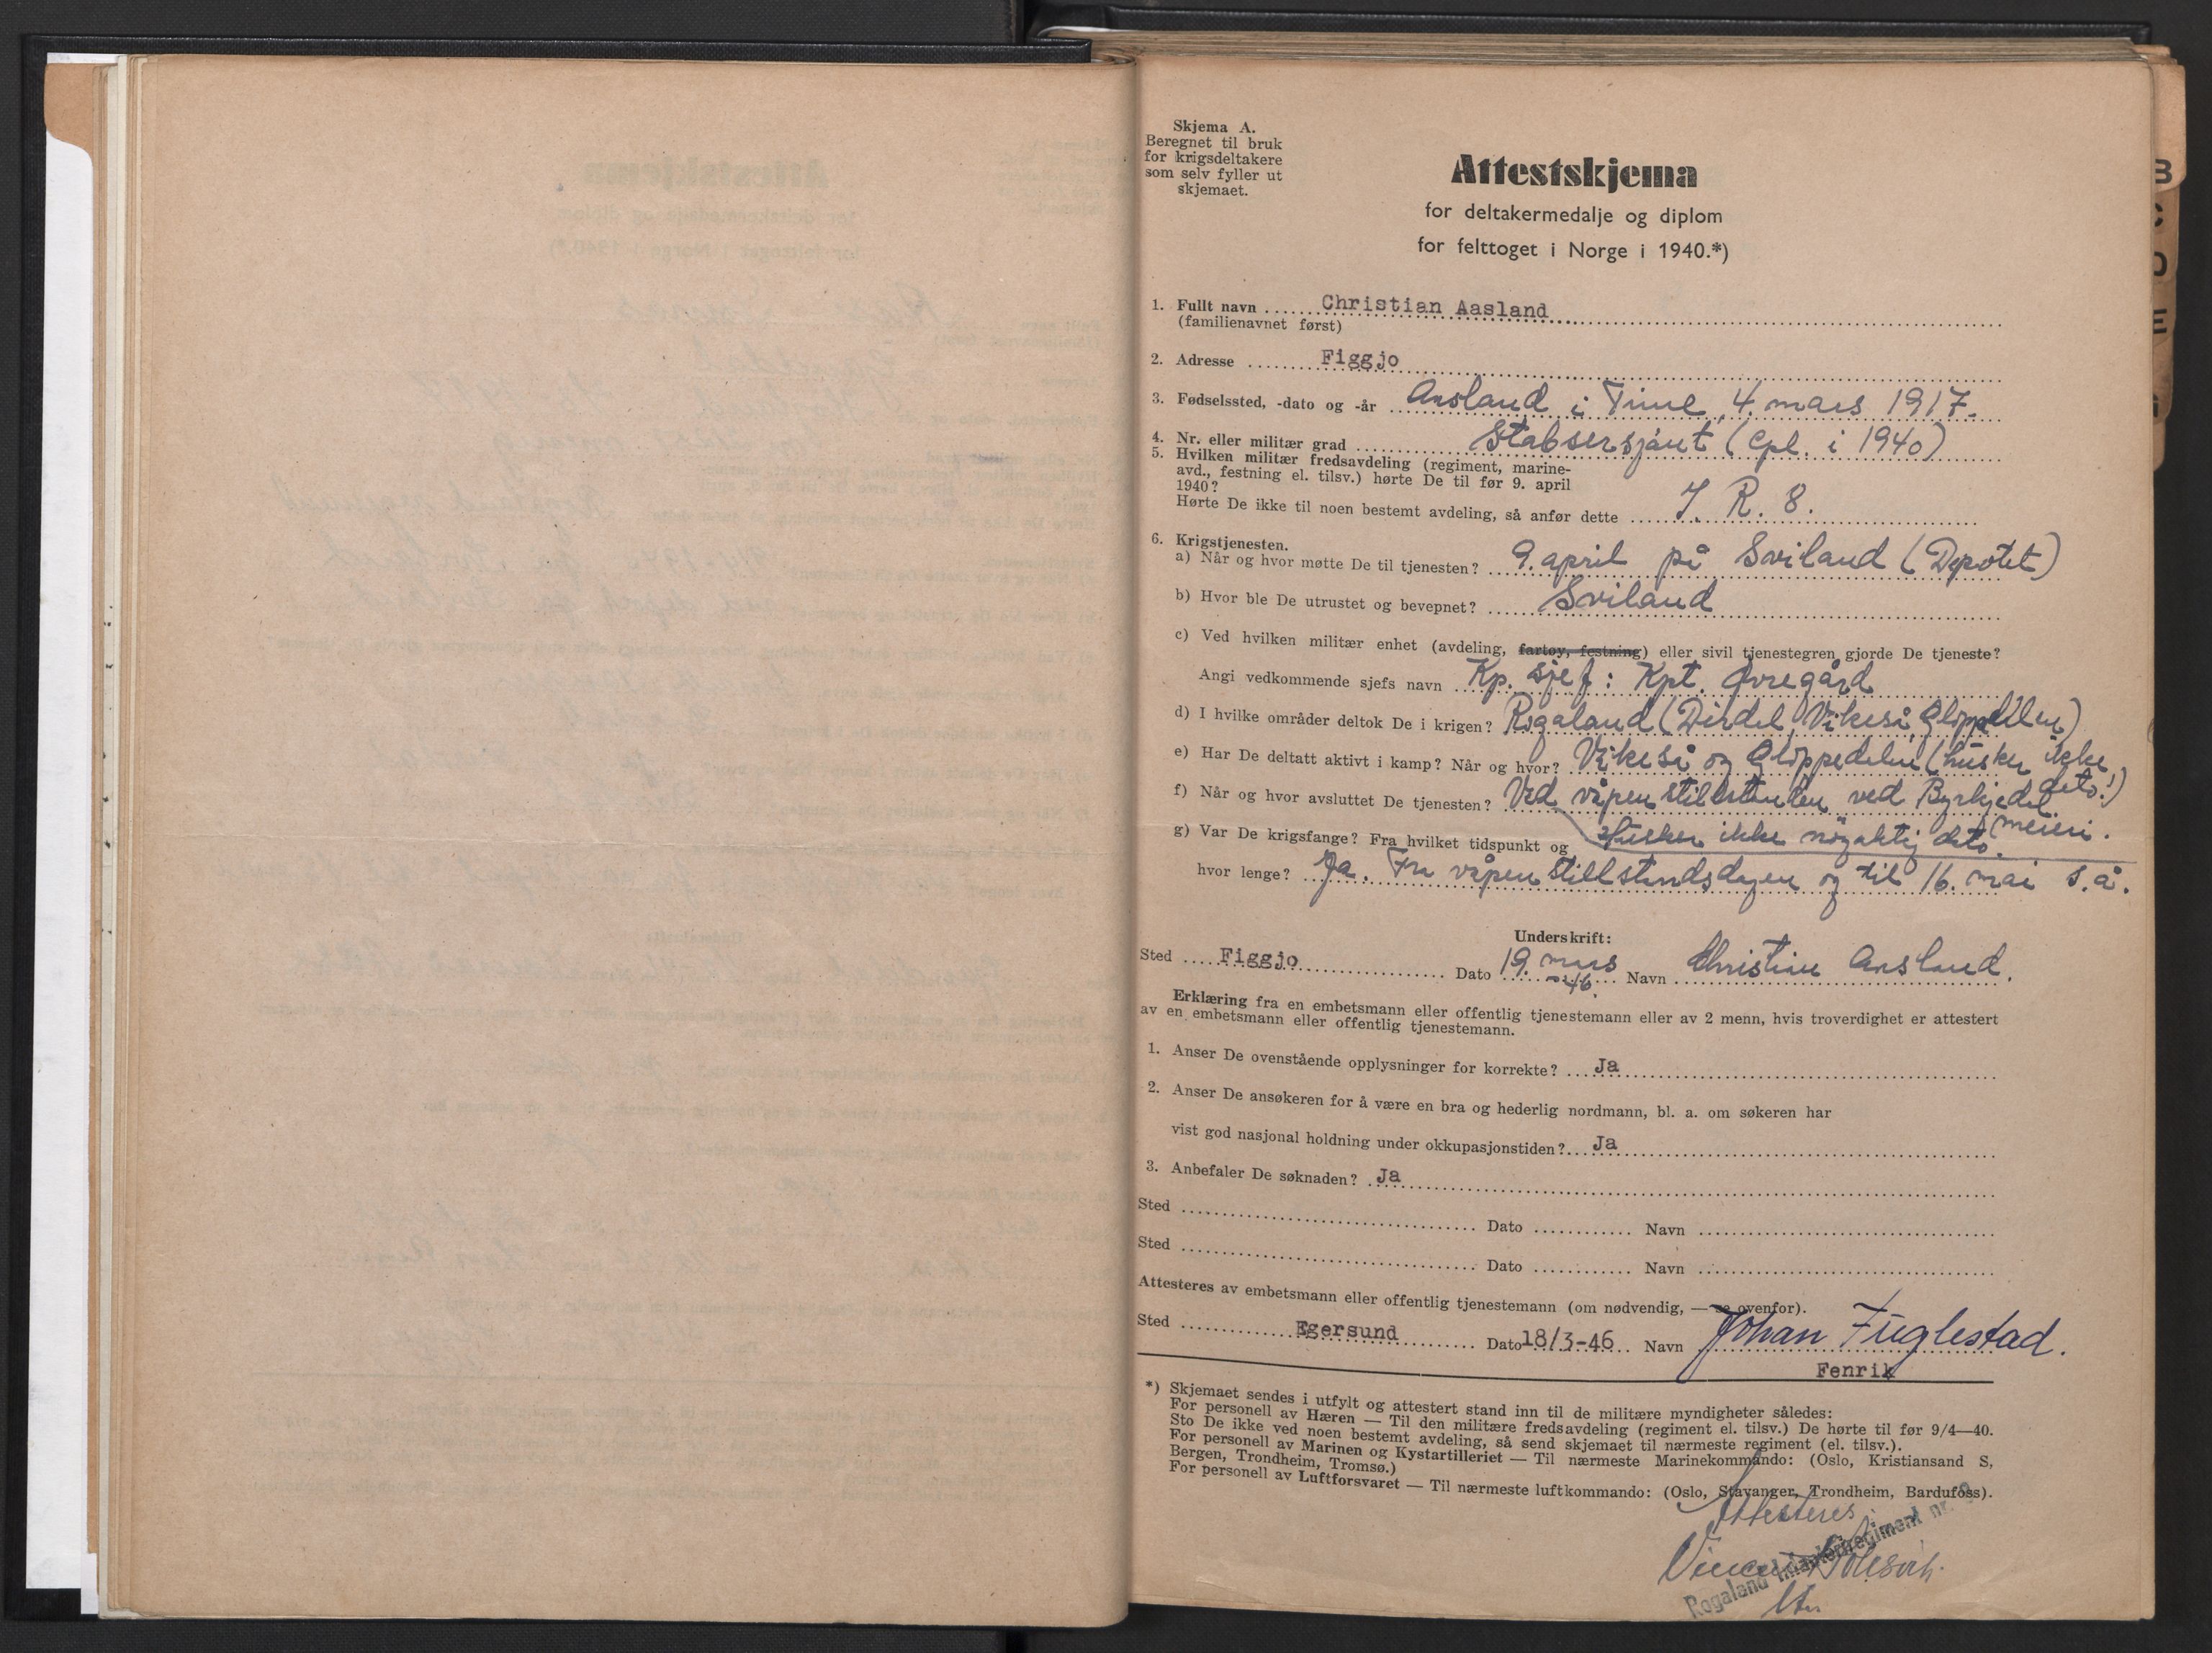 Skjema A.
Beregnet til bruk
for krigsdeltakere
som selv fyller ut
skjemaet.
Attestskjema
for deltakermedalje og diplom
for felttoget i Norge i 1940.*)
1. Fullt navn Christian Aasland
(familienavnet først)
2. Adresse Figgjo
3. Fødselssted, -dato og -år Aasland i Time, 4. mars 1917.
4. Nr. eller militær grad Stabsersjant (Cpl. i 1940)
5. Hvilken militær fredsavdeling (regiment, marine-
avd., festning el. tilsv.) hørte De til før 9. april
1940?
Hørte De ikke til noen bestemt avdeling, så anfør dette J. R. 8.
6. Krigstjenesten.
a) Når og hvor møtte De til tjenesten? 9. april på Sviland (Depotet)
b) Hvor ble De utrustet og bevepnet? Sviland
c) Ved hvilken militær enhet (avdeling, fartøy, festning) eller sivil tjenestegren gjorde De tjeneste?
Angi vedkommende sjefs navn Kp. sjef: Kpt. Øvregård
d) I hvilke områder deltok De i krigen? Rogaland (Dirdal, Vikeså, Gloppedalen)
e) Har De deltatt aktivt i kamp? Når og hvor? Vikeså og Gloppedalen (husker ikke
dato!)
f) Når og hvor avsluttet De tjenesten? Ved våpenstillstanden ved Byrkjedal
meieri.
Husker ikke nøyaktig dato.
g) Var De krigsfange? Fra hvilket tidspunkt og
hvor lenge? Ja. Fra våpenstillstandsdagen og til 16. mai s.å.
Underskrift:
Sted Figgjo Dato 19. mars -46. Navn Christian Aasland.
Erklæring fra en embetsmann eller offentlig tjenestemann eller av 2 menn, hvis troverdighet er attestert
av en embetsmann eller offentlig tjenestemann.
1. Anser De ovenstående opplysninger for korrekte? Ja
2. Anser De ansøkeren for å være en bra og hederlig nordmann, bl. a. om søkeren har
vist god nasjonal holdning under okkupasjonstiden? Ja
3. Anbefaler De søknaden? Ja
Sted Dato Navn
Sted Dato Navn
Attesteres av embetsmann eller offentlig tjenestemann (om nødvendig, — se ovenfor).
Sted Egersund Dato 18/3-46 Navn Johan Fuglestad.
Fenrik
*) Skjemaet sendes i utfylt og attestert stand inn til de militære myndigheter således:
For personell av Hæren — Til den militære fredsavdeling (regiment el. tilsv.) De hørte til før 9/4—40.
Sto De ikke ved noen bestemt avdeling, så send skjemaet til nærmeste regiment (el. tilsv.).
For personell av Marinen og Kystartilleriet — Til nærmeste Marinekommando: (Oslo, Kristiansand S,
Bergen, Trondheim, Tromsø.)
For personell av Luftforsvaret — Til nærmeste luftkommando: (Oslo, Stavanger, Trondheim, Bardufoss).
Attesteres
Rogaland Infanteriregiment nr. 8
B
C
D
E